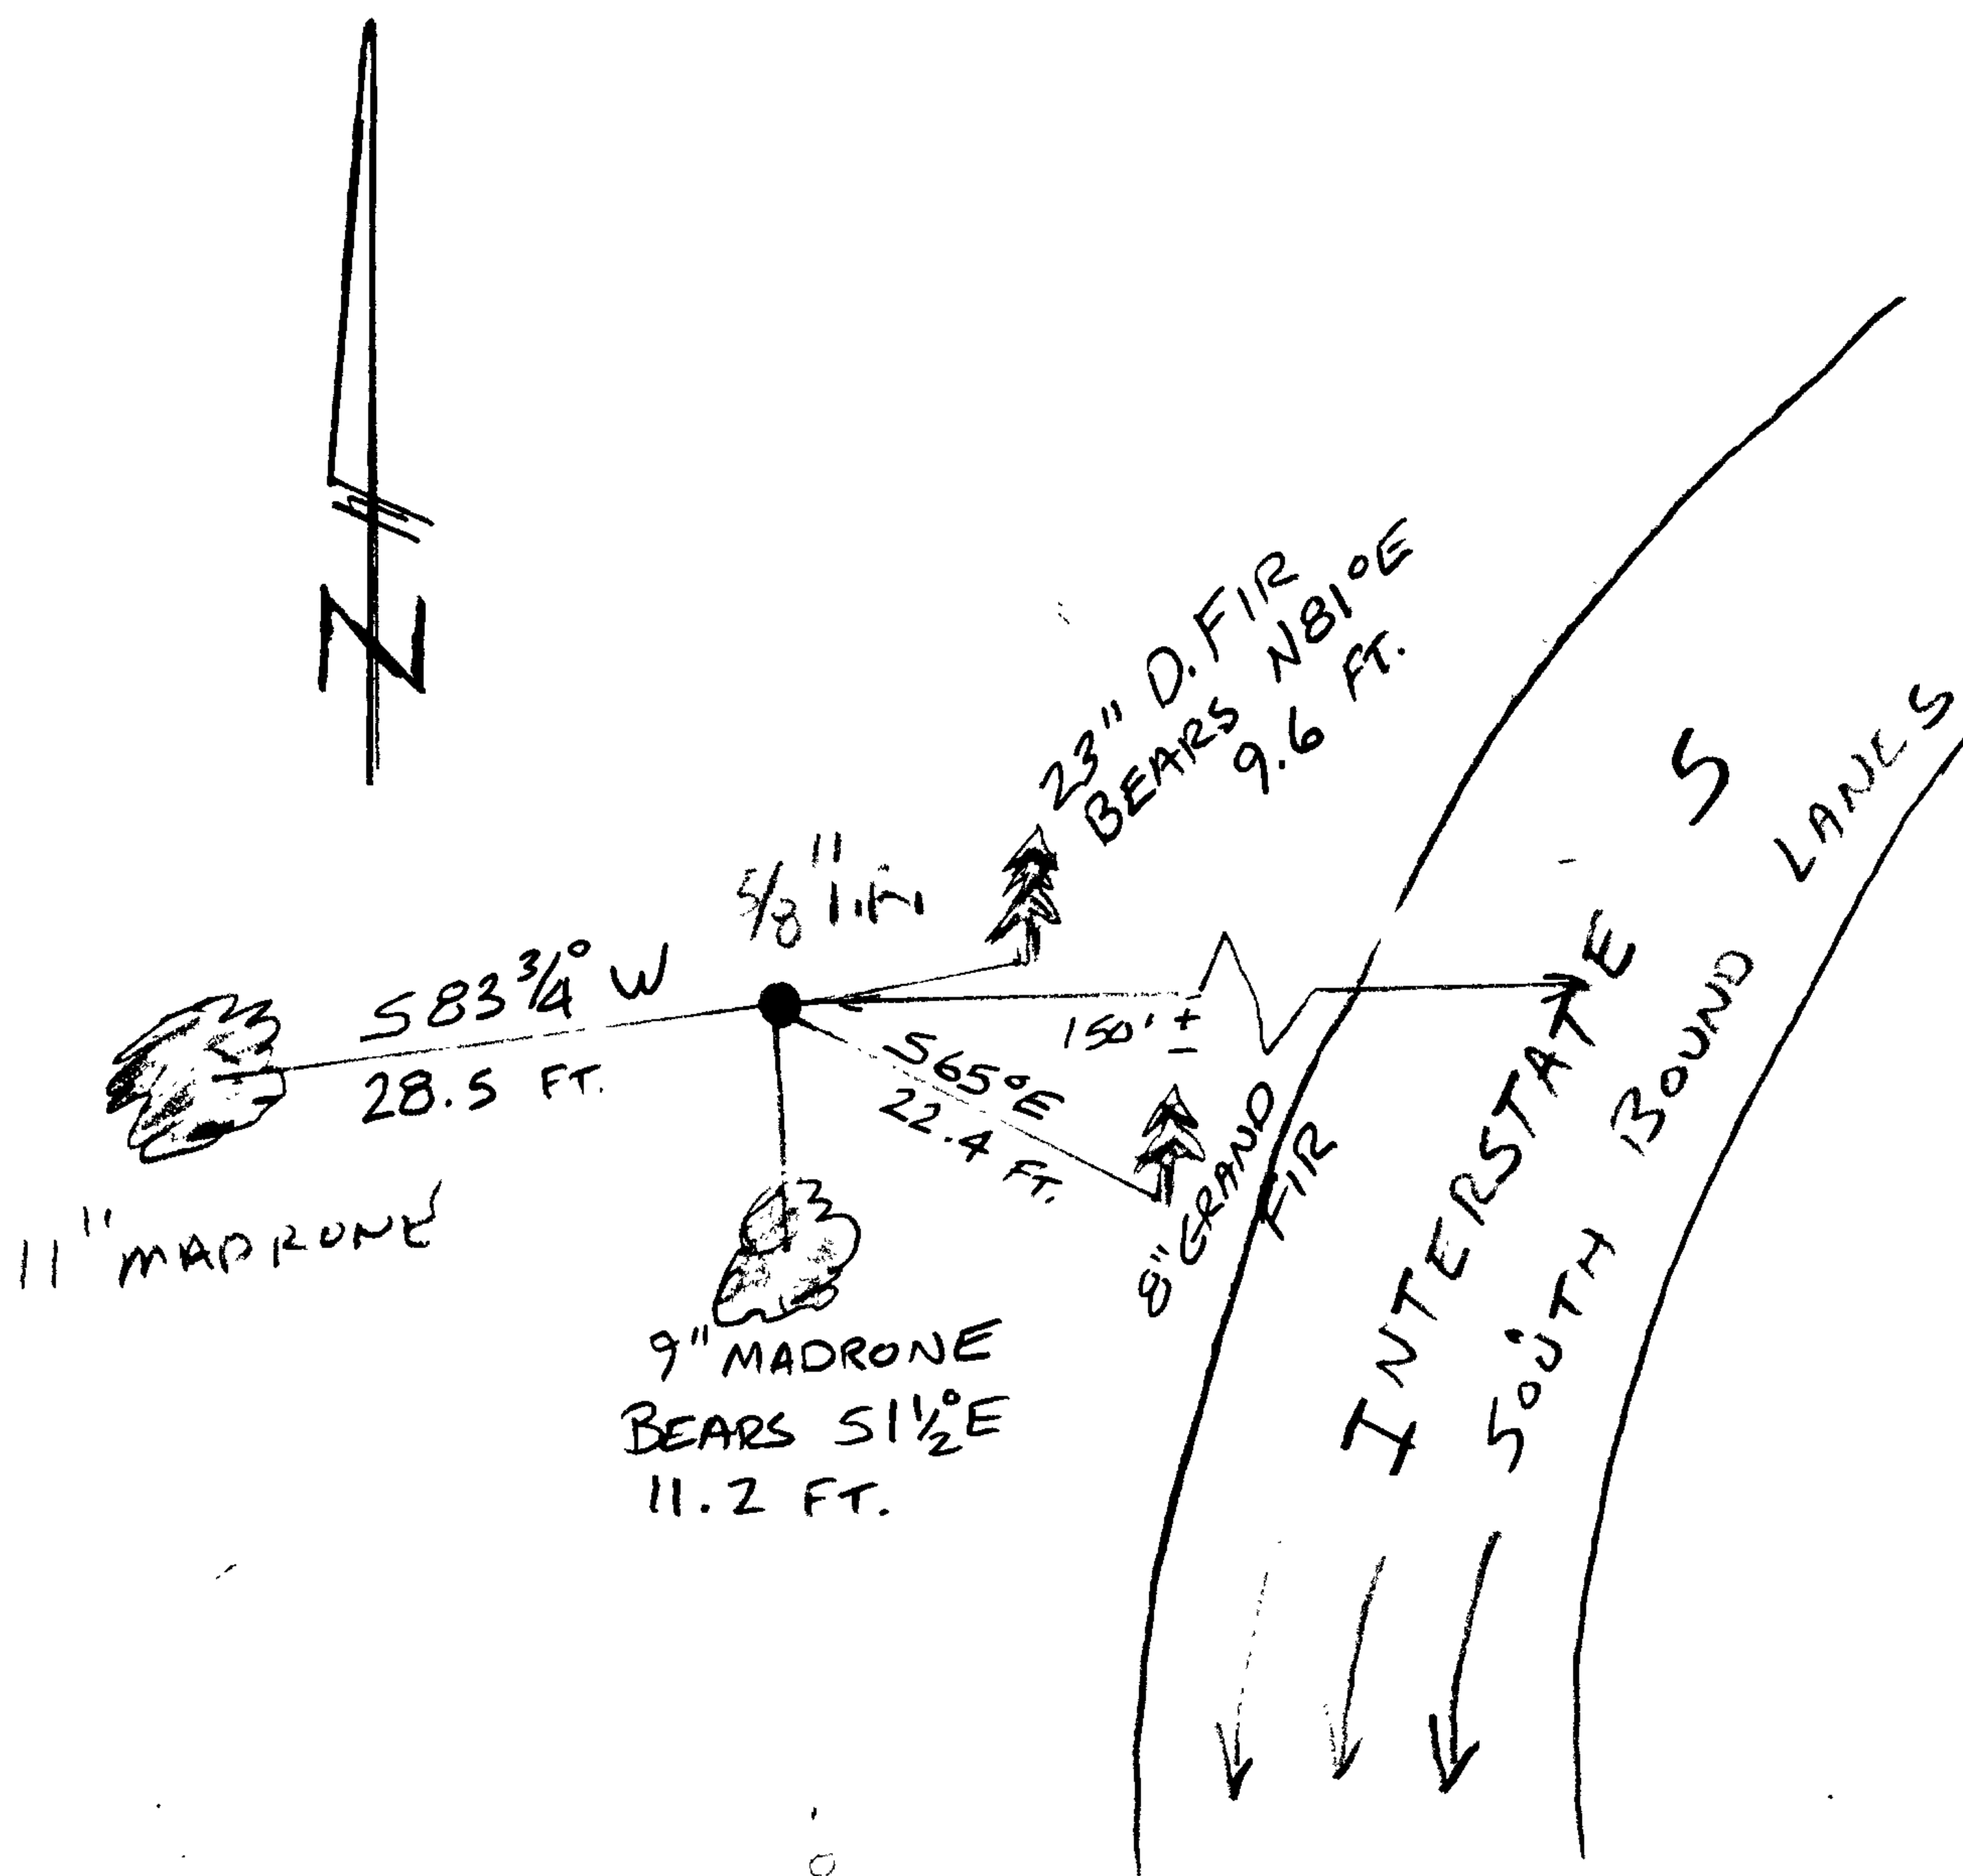 N
23" D. FIR
BEARS N81°E
9.6 FT.
5/8"
S83 3/4° W
28.5 FT.
11" MADRONE
150' ±
S65°E
22.4 FT.
8" GRAND
FIR
9" MADRONE
BEARS S1 1/2° E
11.2 FT.
INTERSTATE 5
SOUTH BOUND LANES